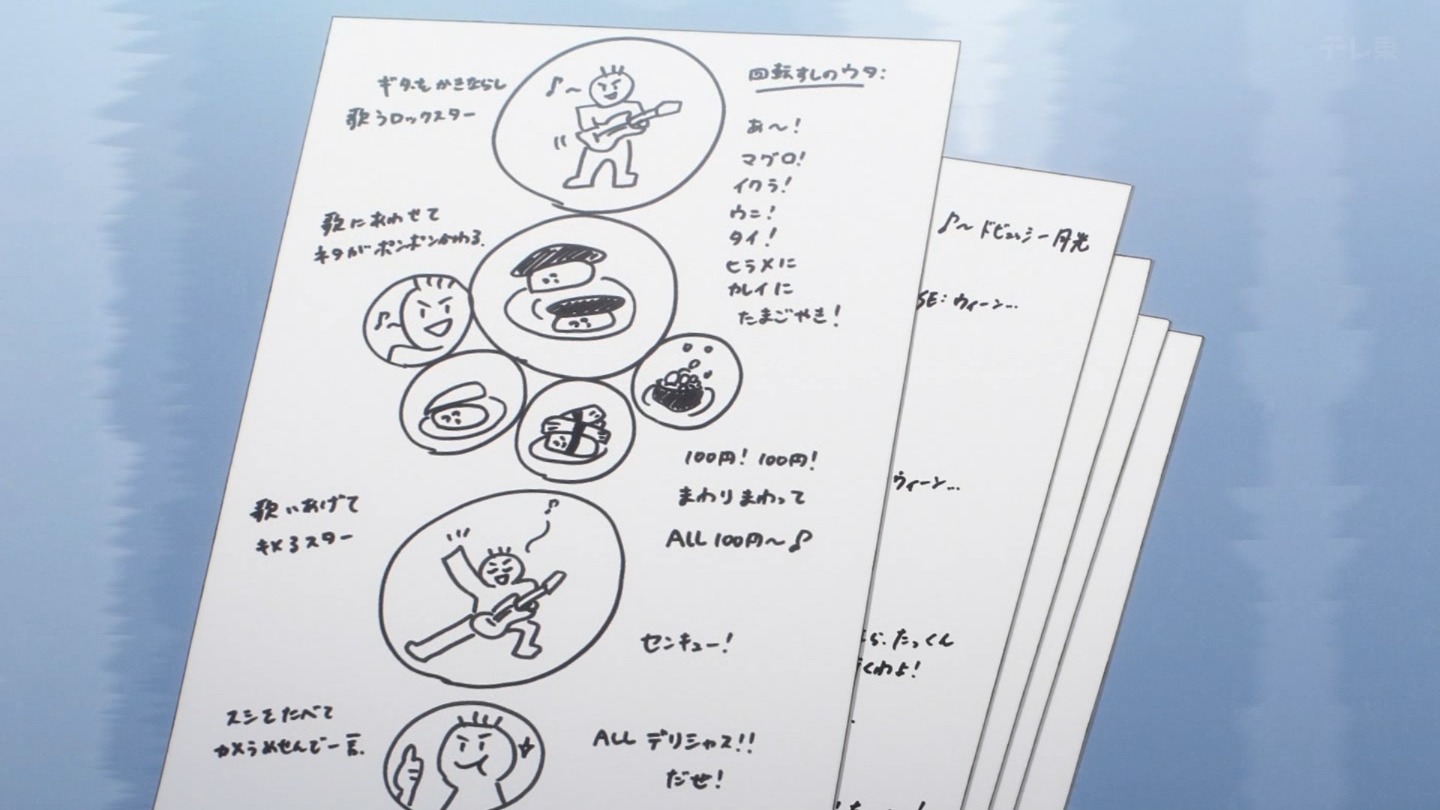 テレ東
ギターをかきならし
歌うロックスター
回転すしのウタ:
あ〜!
マグロ!
イクラ!
ウニ!
タイ!
ヒラメに
カレイに
たまごやき!
歌にあわせて
ネタがポンポンかわる。
♪〜
♪〜
100円! 100円!
まわりまわって
ALL 100円〜♪
歌いあげて
キメるスター
♪
センキュー!
スシをたべて
カメラめせんで一言。
ALL デリシャス!!
だぜ!
♪〜ドビュッシー 月光
SE:ウィーン…
ウィーン…
ら、たっくん
くわよ!